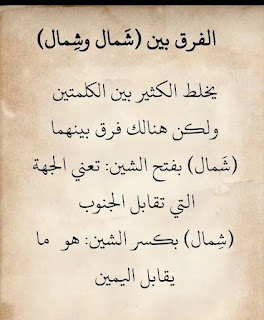 الفرق بين (شَمال وشِمال)
يخلط الكثير بين الكلمتين
ولكن هنالك فرق بينهما
(شَمال) بفتح الشين: تعني الجهة
التي تقابل الجنوب
(شِمال) بكسر الشين: هو ما
يقابل اليمين